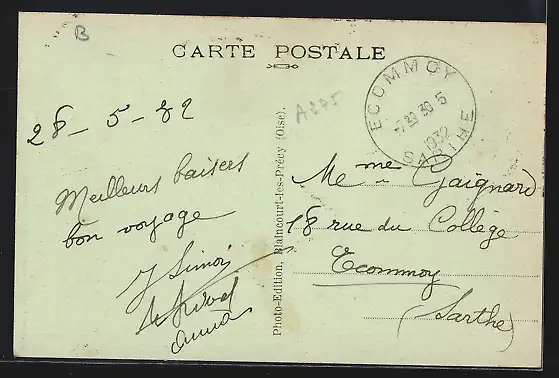 B
CARTE POSTALE
ECOMMOY
7 20 30 5
1932
SARTHE
28 - 5 - 32
Meilleurs baisers
bon voyage
Photo-Edition, Blaincourt-les-Précy (Oise).
Mme Gaignard
18 rue du Collège
Ecommoy
(Sarthe)
J Simon